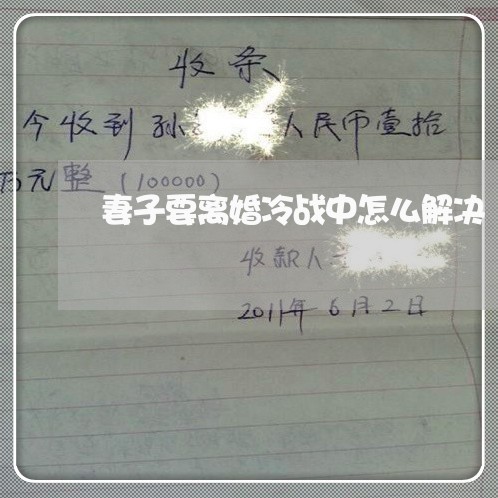 收条
今收到孙 人民币壹拾
万元整（100000）
妻子要离婚冷战中怎么解决
收款人
2011年6月2日